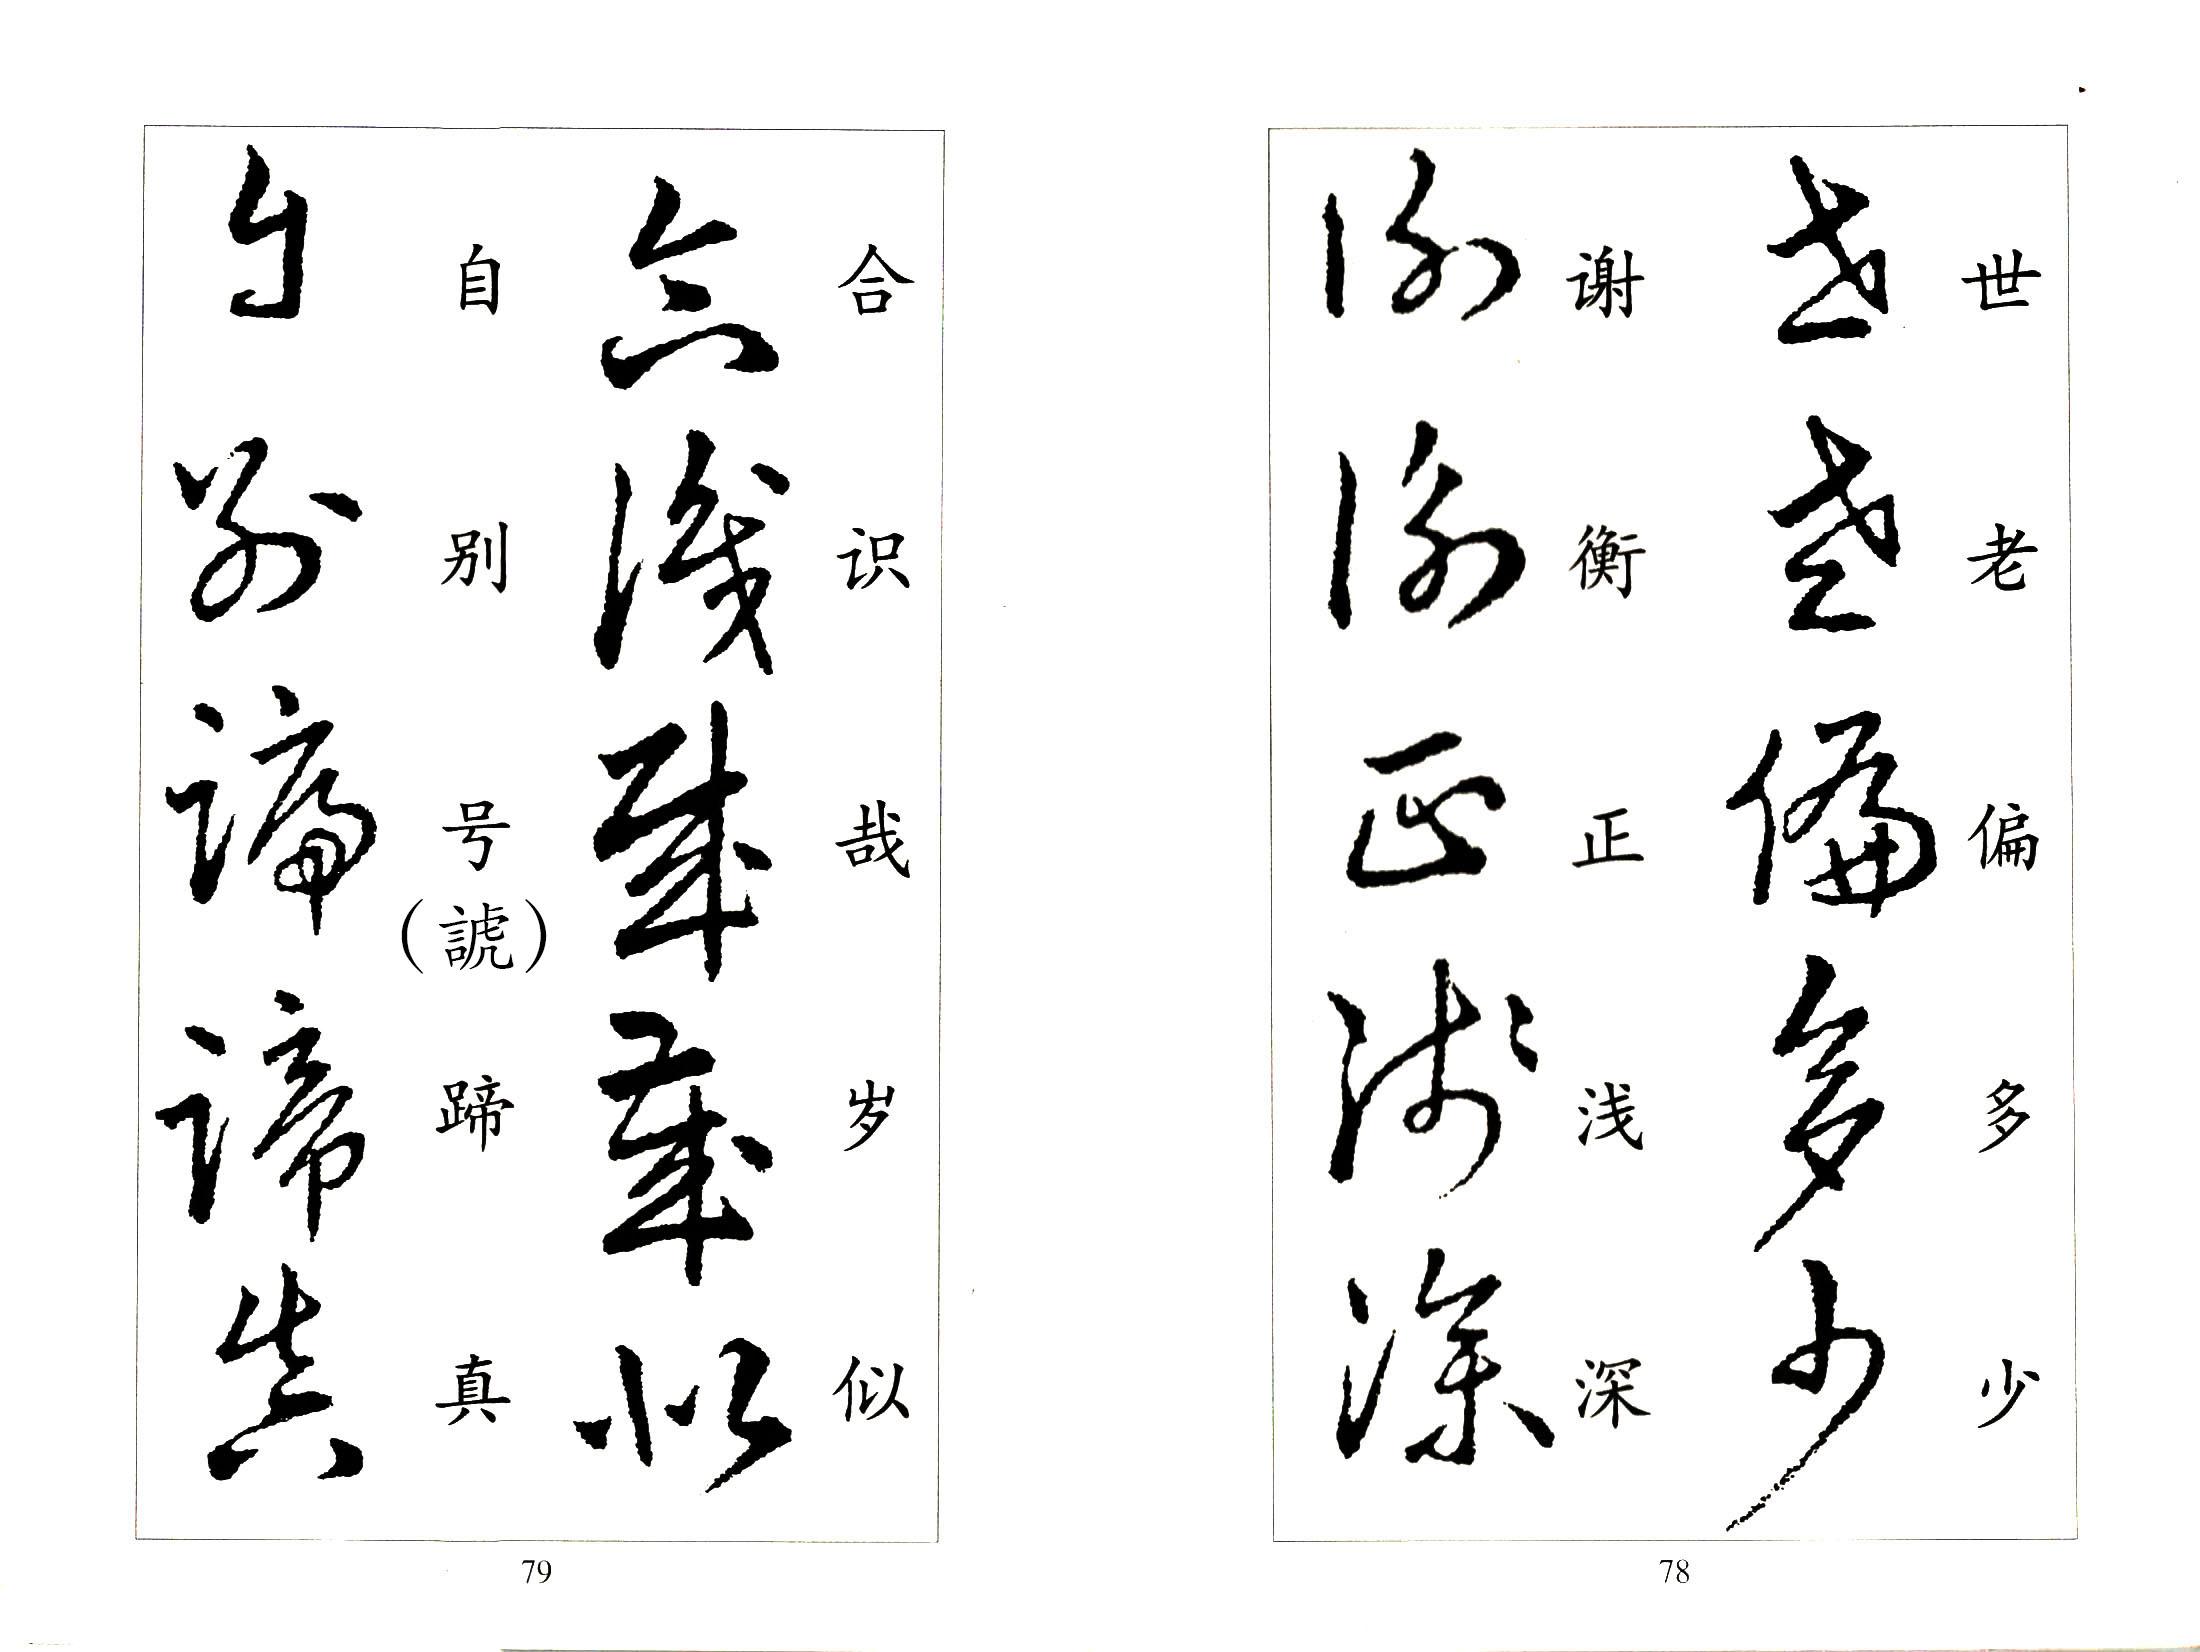 世老偏多少
谢衡正浅深
78
合识哉岁似
自别号(諕)蹄真
79